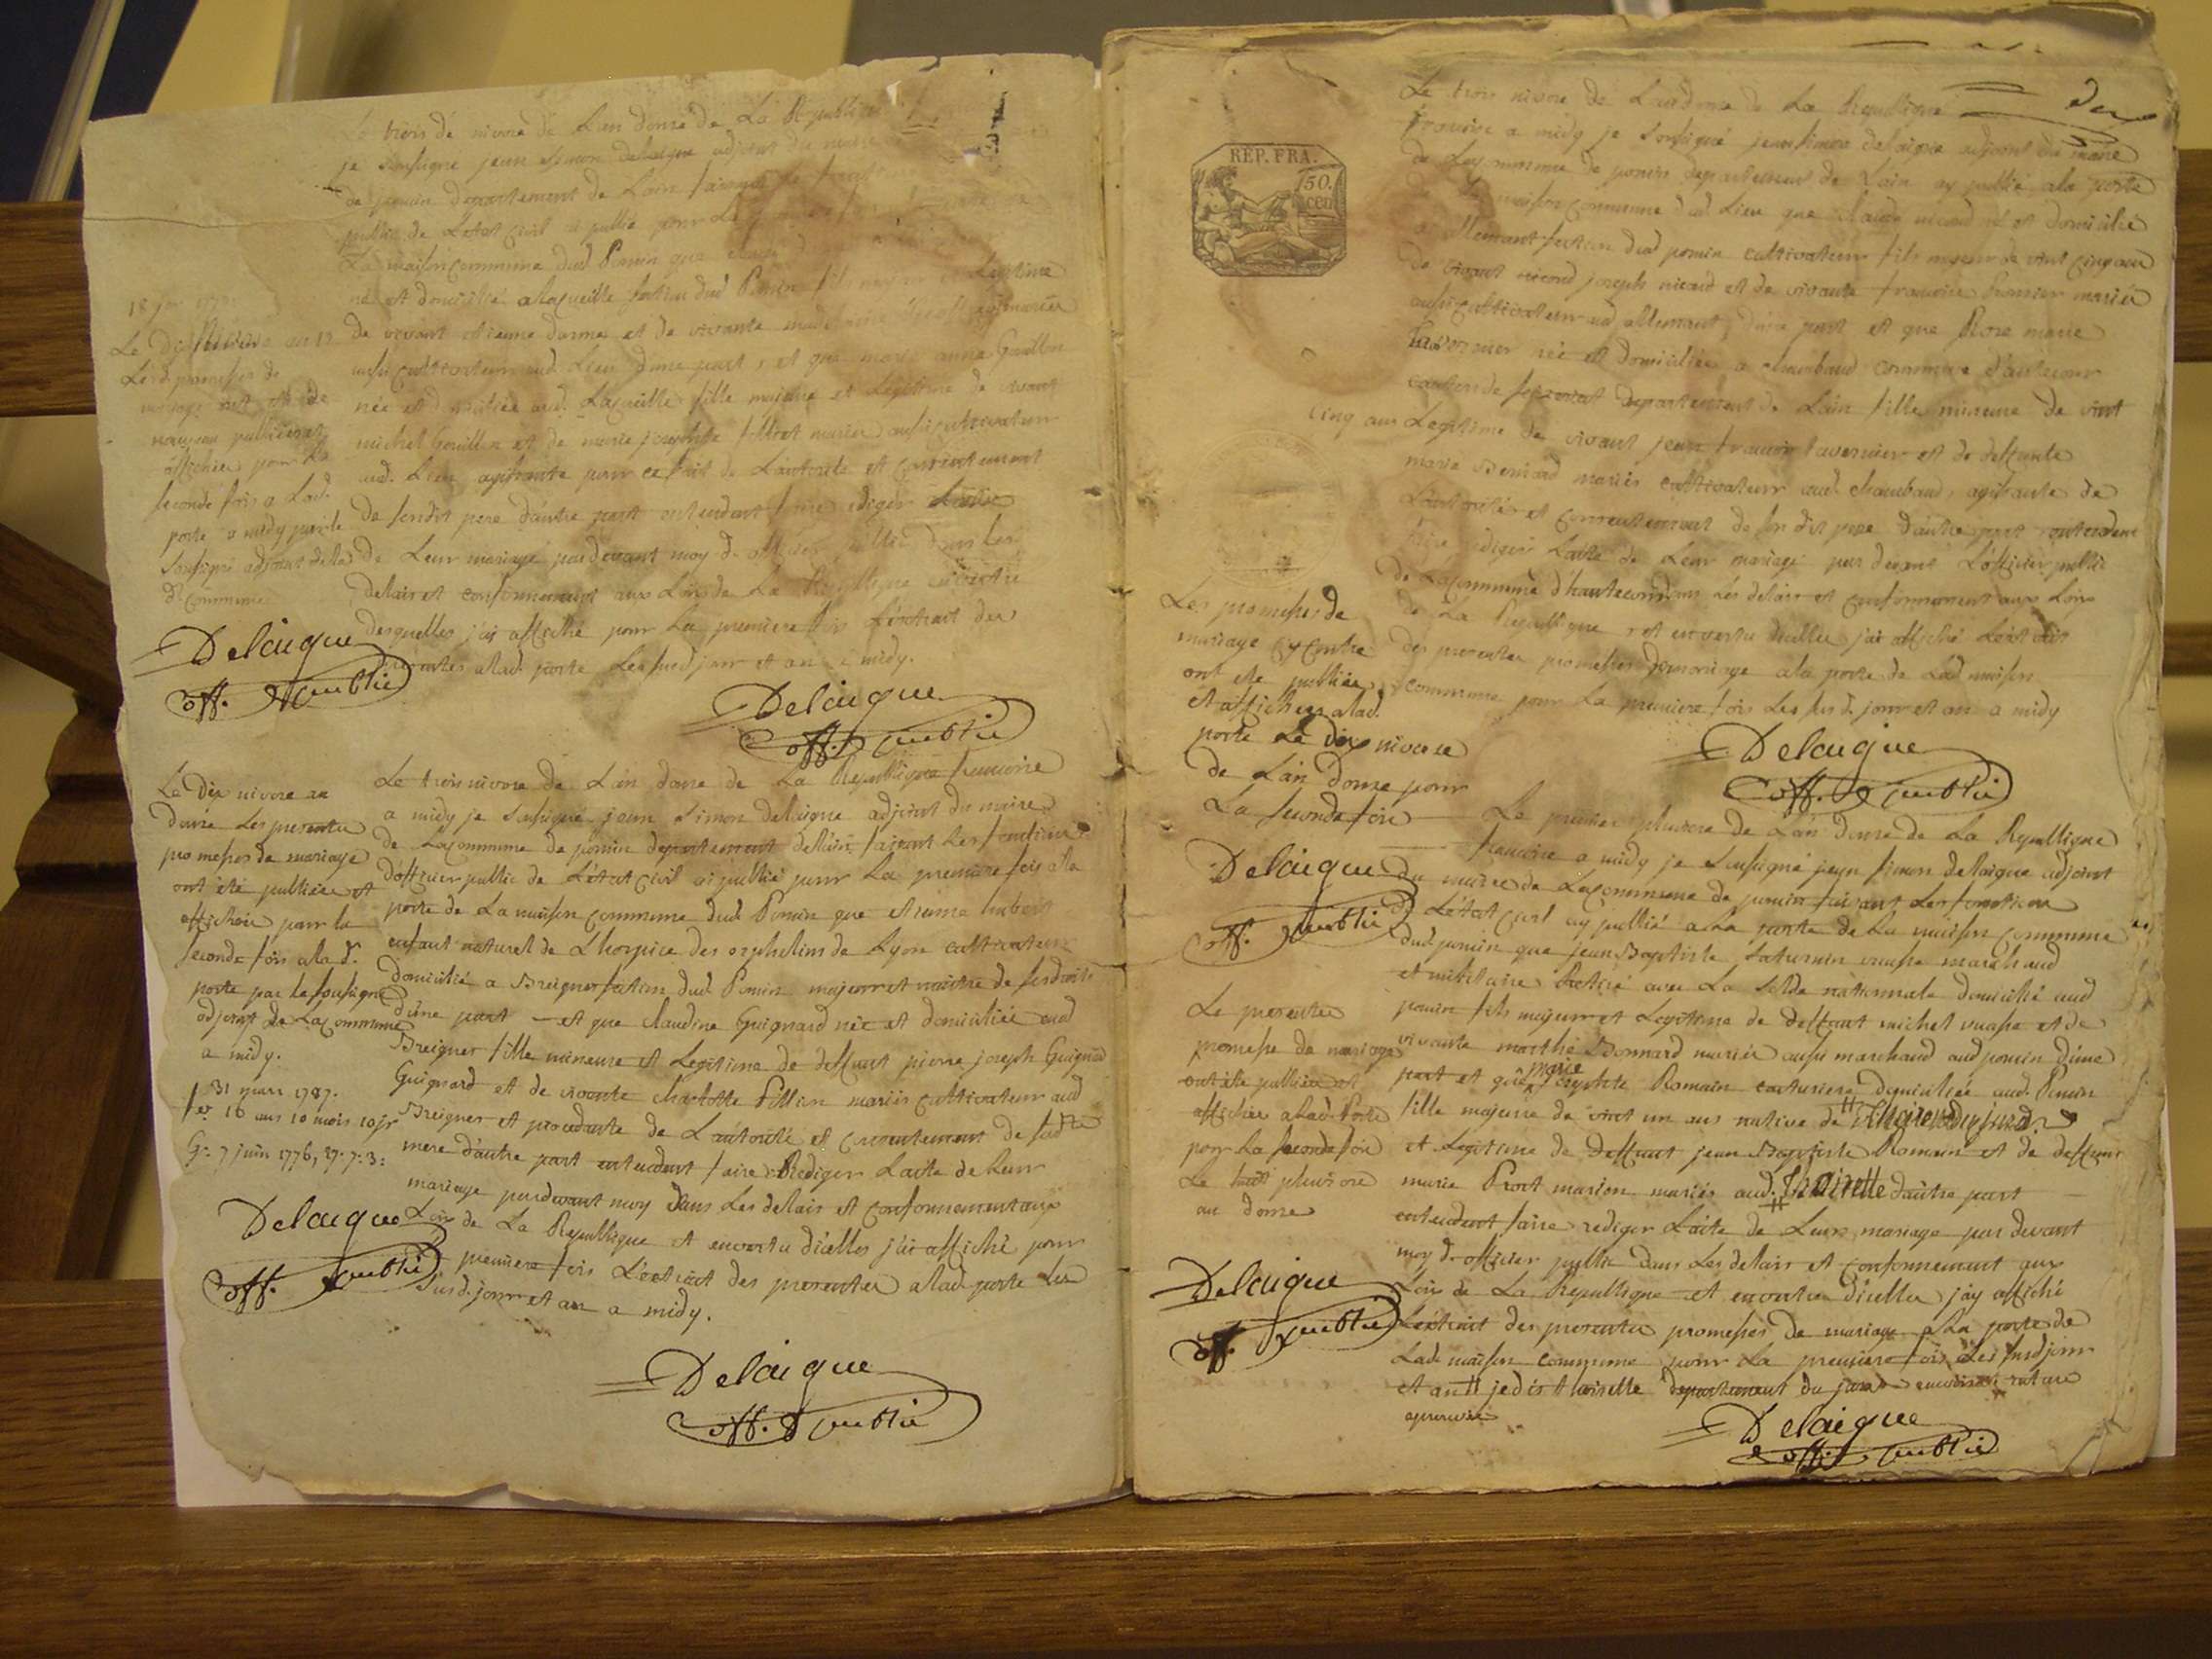 Le trois de nivose de L'an douze de La Republique
je soussigne jean Simon delaigue adjoint du maire
de poncin departement de Lain faisant les fonctions
public de L'etat Civil ai publié pour La premiere
La maison commune dud Poncin que
né et domicilié a Lacueille section dud Poncin fils majeur et Legitime
de vivant etienne darme et de vivante mariés
aussi cultivateurs aud. Lieu d'une part, et que marie anne Gouillon
née et domiciliée aud. Lacueille fille majeure et Legitime de vivant
michel Gouillon et de marie josephte mariés aussi cultivateurs
aud. Lieu agissante pour ce fait de L'autorité et Consentement
de sondit pere d'autre part entendent faire rediger L'acte
de Leur mariage pardevant moy d. officier public dans les
delais et conformement aux Lois de La Republique en vertu
desquelles j'ai affiché pour La premiere fois L'extrait des
presentes alad. porte Les susd jour et an a midy.
Delaigue
off. public
18 jer 177
Le dix nivose an 12
Lesd. promesses de
mariage ont été de
nouveau publiées et
affichées pour La
seconde fois a Lad.
porte a midy par le
soussigné adjoint de lad
d. commune
Delaigue
off. public
Le trois nivose de L'an douze de La Republique francoise
a midy je soussigné jean Simon delaigue adjoint du maire
de Lacommune de poncin departement de L'ain faisant Les fonctions
d'officier public de L'état Civil ai publié pour La premiere fois a la
porte de La maison commune dud. Poncin que etienne imbert
enfant naturel de L'hospice des orphelins de Lyon cultivateur
domicilié a Breignes section dud. Poncin majeur et maitre de ses droits
d'une part — et que claudine Guignard née et domiciliée aud
Breignes fille mineure et Legitime de deffunt pierre joseph Guignard
Guignard et de vivante charlotte Pillion mariés cultivateurs aud
Breignes et procedante de L'autorité et consentement de sad.te
mere d'autre part entendent faire Rediger L'acte de Leur
mariage pardevant moy dans Les delais et conformement aux
Lois de La Republique et en vertu d'icelles j'ai affiché pour
La premiere fois L'extrait des presentes alad. porte Les
susd. jour et an a midy.
Delaigue
off. public
Le dix nivose an
douze Les presentes
promesses de mariage
ont été publiées et
affichées pour la
seconde fois alad.
porte par le soussigné
adjoint de Lacommune
a midy.
31 mars 1787.
16 ans 10 mois 10 jrs
G: 7 juin 1776, 27. 7. 3:
Delaigue
off. public
REP. FRA.
50.
cen
Le trois nivose de L'an douze de La Republique
francoise a midy je soussigné jean simon delaigue adjoint du maire
de Lacommune de poncin departement de Lain ay publié ala porte
de la maison commune dud Lieu que claude nicoud né et domicilié
a allemant section dud poncin cultivateur fils majeur de vint cinq ans
de vivant nicoud joseph nicoud et de vivante francoise mariés
aussi cultivateurs aud allemant, d'une part et que Rose marie
tavernier née et domiciliée a chambaud commune d'autecour
canton de departement de Lain fille mineure de vint
cinq ans Legitime de vivant jean francois tavernier et de deffunte
marie Bernard mariés cultivateurs aud. chambaud, agissante de
L'autorité et consentement de son dit pere d'autre part entendent
faire rediger L'acte de Leur mariage par devant L'officier public
de Lacommune d'hautecour dans Les delais et conformement aux Lois
de La Republique, et en vertu d'icelles j'ai affiché L'extrait
des presentes promesses de mariage ala porte de Lad maison
commune pour La premiere fois Les susd. jour et an a midy
Delaigue
off. public
Les promesses de
mariage cy contre
ont été publiées
et affichées alad.
porte Le dix nivose
de L'an douze pour
La seconde fois
Delaigue
off. public
Le premier pluviose de L'an douze de La Republique
francoise a midy je soussigné jean simon delaigue adjoint
du maire de Lacommune de poncin faisant Les fonctions
de L'état Civil ay publié a La porte de La maison commune
dud. poncin que jean Baptiste Saturnin marchand
et militaire Retiré avec La solde nationnale domicilié aud
poncin fils majeur et Legitime de deffunt michel et de
vivante marthe Bonnard mariés aussi marchand aud poncin d'une
part et que marie josephte Romain couturiere domiciliée aud. Poncin
fille majeure de vint un ans native de
et Legitime de deffunt jean Baptiste Romain et de deffunte
marie Prost marion mariés aud. Thoirette d'autre part
entendent faire rediger L'acte de Leur mariage par devant
moy d. officier public dans Les delais et conformement aux
Lois de La Republique et en vertu d'icelles j'ay affiché
L'extrait des presentes promesses de mariage a La porte de
Lad. maison commune pour La premiere fois Les susd jour
et an # je dis thoirette departement du jura rature
approuvée
Delaigue
off. public
Les presentes
promesse de mariage
ont été publiées et
affichées alad Porte
pour La seconde fois
Le huit pluviose
an douze
Delaigue
off. public